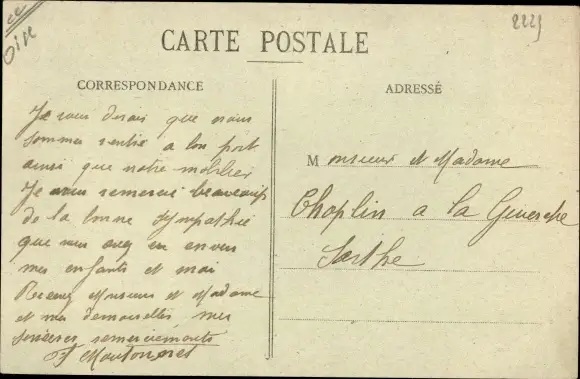 Oise
2225
CARTE POSTALE
CORRESPONDANCE
Je vous dirais que nous
sommes rentré a bon port
ainsi que notre mobilier
Je vous remerci beaucoup
de la bonne sympathie
que vous avez eu envers
mes enfants et moi
Recevez Monsieur et Madame
et mes demoiselles mes
sincères remerciements
ADRESSÉ
Monsieur et Madame
Choplin a la Guierche
Sarthe